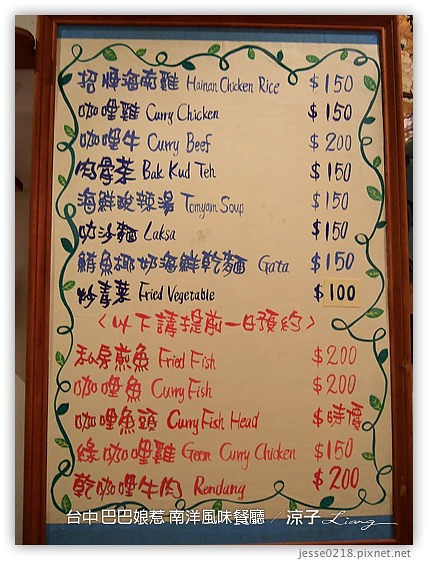 招牌海南雞 Hainan Chicken Rice $150
咖哩雞 Curry Chicken $150
咖哩牛 Curry Beef $200
肉骨茶 Bak Kud Teh $150
海鮮酸辣湯 Tomyam Soup $150
叻沙麵 Laksa $150
鮮魚椰奶海鮮乾麵 Gata $150
炒青菜 Fried Vegetable $100
<以下請提前一日預約>
私房煎魚 Fried Fish $200
咖哩魚 Curry Fish $200
咖哩魚頭 Curry Fish Head $時價
綠咖哩雞 Geen Curry Chicken $150
乾咖哩牛肉 Rendang $200
台中 巴巴娘惹 南洋風味餐廳 / 涼子 Liang
jesse0218.pixnet.net